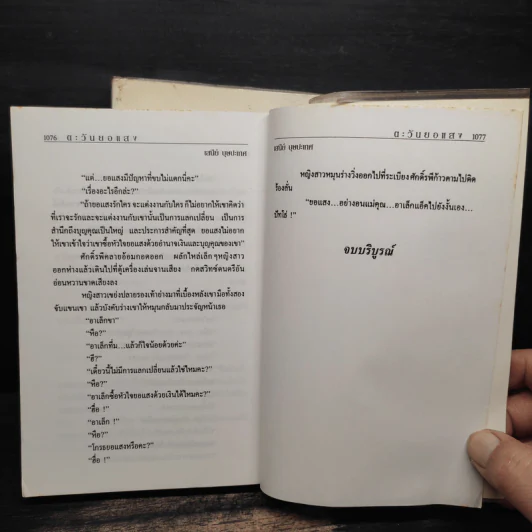 1076 ตะวันยอแสง
เสนีย์ บุษปะเกศ
“แต่...ยอแสงมีปัญหาที่ขบไม่แตกนี่คะ”
“เรื่องอะไรอีกล่ะ?”
“ถ้ายอแสงรักใคร จะแต่งงานกับใคร ก็ไม่อยากให้เขาคิดว่า
ที่เราจะรักและจะแต่งงานกับเขานั้นเป็นการแลกเปลี่ยน เป็นการ
สำนึกถึงบุญคุณเป็นใหญ่ และประการสำคัญที่สุด ยอแสงไม่อยาก
ให้เขาเข้าใจว่าเขาซื้อหัวใจยอแสงด้วยอำนาจเงินและบุญคุณของเขา”
ศักดิ์รพีคลายอ้อมกอดออก ผลักไหล่เล็กๆหญิงสาว
ออกห่างแล้วเดินไปที่ตู้เครื่องเล่นจานเสียง กดสวิทช์ดนตรีอัน
อ่อนหวานขาดเสียงลง
หญิงสาวเขย่งปลายรองเท้าย่างมาที่เบื้องหลังเขามือทั้งสอง
จับแขนเขา แล้วบังคับร่างเขาให้หมุนกลับมาประจัญหน้าเธอ
“อาเล็กขา”
“หือ?”
“อาเล็กทึ่ม...แล้วก็ใจน้อยด้วยค่ะ”
“ฮึ?”
“เดี๋ยวนี้ไม่มีการแลกเปลี่ยนแล้วใช่ไหมคะ?”
“หือ?”
“อาเล็กซื้อหัวใจยอแสงด้วยเงินได้ไหมคะ?”
“ฮื่อ !”
“อาเล็ก !”
“หือ?”
“โกรธยอแสงหรือคะ?”
“ฮื่อ !”
ตะวันยอแสง 1077
หญิงสาวหมุนร่างวิ่งออกไปที่ระเบียง ศักดิ์รพีก้าวตามไปติด
ร้องลั่น
“ยอแสง...อย่างอนแม่คุณ...อาเล็กแอ๊คไปยังงั้นเอง...
โธ่ !”
จบบริบูรณ์